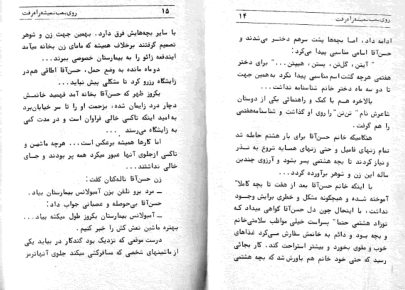 روی بیضه نمیشه راه رفت
۱۴
ادامه داد، اما بچه‌ها پشت سرهم دختر می‌شدند و
حسن‌آقا اسامی مناسبی پیدا میکرد:
" آیش، گل‌ش، بستن، همینش... " برای دختر
هفتمی هرچه گشت اسم مناسبی پیدا نکرد به همین جهت
تا دو سه ماه دختر خانم شناسنامه نداشت...
بالاخره هم با کمک و راهنمائی یکی از دوستان
شاعرش نام "تن‌تن" را روی او گذاشت و شناسنامه هفتمی
را هم گرفت.
همینکه خانم حسن‌آقا برای بار هشتم حامله شد
تمام زنهای فامیل و حتی زنهای همسایه شروع به نذر
و نیاز کردند تا بچه هشتمی پسر بشود و آرزوی چندین
ساله این زن و شوهر برآورده گردد.
با اینکه خانم حسن‌آقا بعد از هفت تا بچه کاملا"
آزموده شده و هیچگونه مشکل و خطری برایش وجود
نداشت، با اینحال چون دل حسن‌آقا گواهی میداد که
نوزاد هشتمی حتما" پسراست خیلی مواظب سلامتی خانم
و بچه بود و دائم به خانمش سفارش می‌کرد غذاهای
خوب و مقوی بخورد و بیشتر استراحت کند. کار بجائی
رسید که حتی خود خانم هم باورش شد که بچه هشتمی
روی بیضه نمیشه راه رفت
۱۵
با سایر بچه‌هایش فرق دارد. بهمین جهت زن و شوهر
تصمیم گرفتند برخلاف همیشه که مامای زن بخانه میآمد
ایندفعه زائو را به بیمارستان خصوصی ببرند...
دو ماه مانده به وضع حمل، حسن‌آقا اطاقی هم در
زایشگاه رزرو کرد تا مشکلی پیش نیاید...
یکروز ظهر که حسن‌آقا بخانه آمد فهمید خانمش
دچار درد زایمان شده، بزحمت او را تا سر خیابان برد
به امید اینکه تاکسی خالی فراوان است و در مدت کمی
به زایشگاه می‌رسند...
اما کارها همیشه برعکس است... هرچه ماشین و
تاکسی از جلوی آنها عبور میکرد همه پر بودند و جای
خالی نداشتند...
زن حسن‌آقا ناله‌کنان گفت:
ــ مرد برو تلفن بزن آمبولانس بیمارستان بیاد.
حسن‌آقا بی‌حوصله و عصبانی جواب داد:
ــ آمبولانس بیمارستان یکروز طول میکشه بیاد...
بهتره ماشین نعش کش را خبر کنیم.
درست موقعی که نزدیک بود کندکار در بیاید یکی
از ماشینهای شخصی که مسافرکشی میکند جلوی آنها ترمز